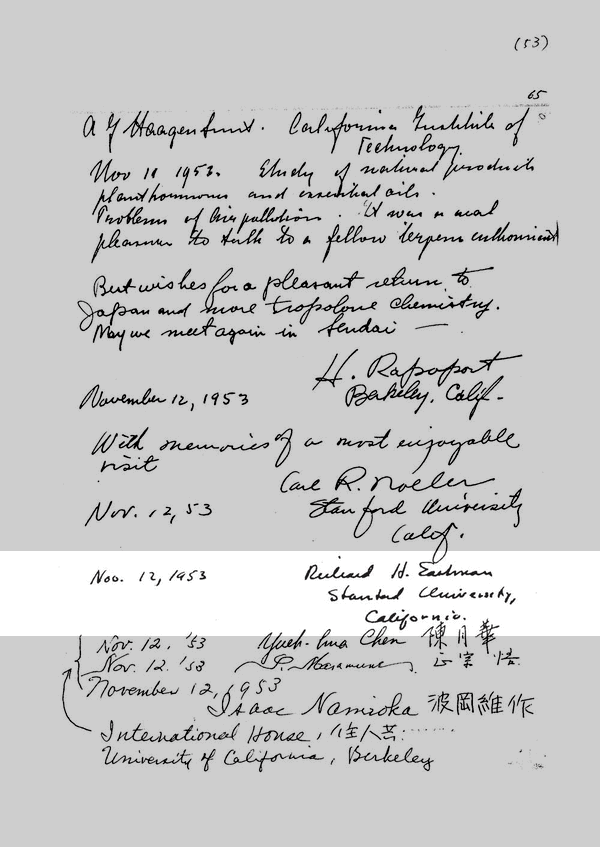 (53)
65
A J Haagen Smit. California Institute of
Technology
Nov 11 1953. Study of natural products
planthormones and essential oils.
Problems of Air pollution. It was a real
pleasure to talk to a fellow terpene enthousiast
Best wishes for a pleasant return to
Japan and more tropolone chemistry.
May we meet again in Sendai —
H. Rapoport
November 12, 1953 Berkeley, Calif.
With memories of a most enjoyable
visit
Carl R. Noller
Nov. 12, 53 Stanford University
Calif.
Nov. 12, 1953 Richard H. Eastman
Stanford University,
California.
Nov. 12. '53 Yueh-hwa Chen 陳月華
Nov. 12. '53 S. Masamune 正宗 悟
November 12, 1953
Isaac Namioka 波岡維作
International House, 住人共
University of California, Berkeley